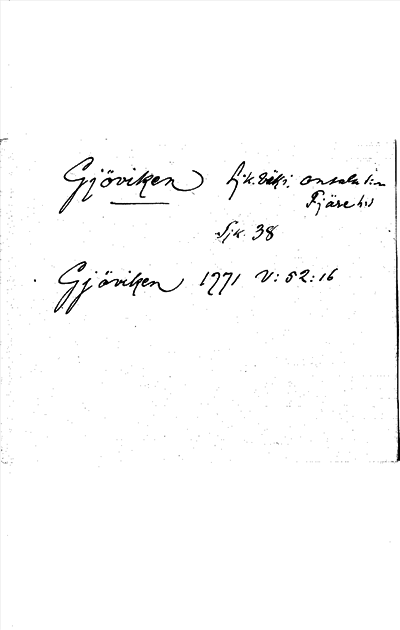 Gjöviken sjk. vik i Onsala sn
Fjäre hd
Sjk. 38
Gjöviken 1771 V:52:16